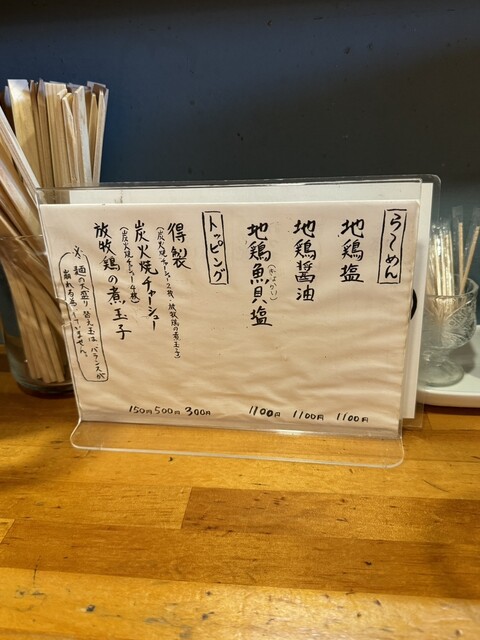 らーめん
地鶏塩 1100円
地鶏醤油 1100円
地鶏魚貝塩 1100円
(ぎょかい)
トッピング
得製 300円
(炭火焼チャーシュー2枚、放牧鶏の煮玉子)
炭火焼チャーシュー 500円
(炭火焼チャーシュー4枚)
放牧鶏の煮玉子 150円
※麺の大盛り替え玉は、バランスが
崩れる為していません。